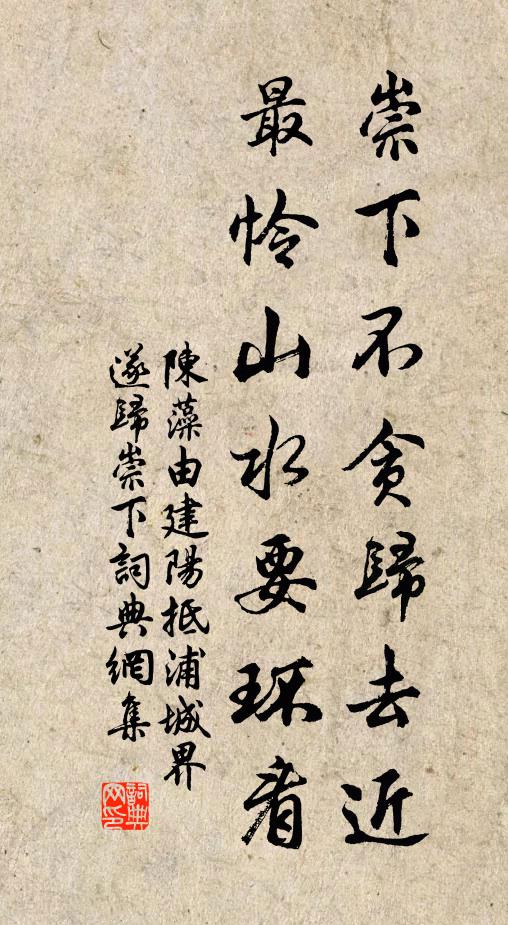 崇下不貪歸去近
最怜山水要环看
陳藻由建陽抵浦城界
遂歸崇下詞典網集
詞典網印